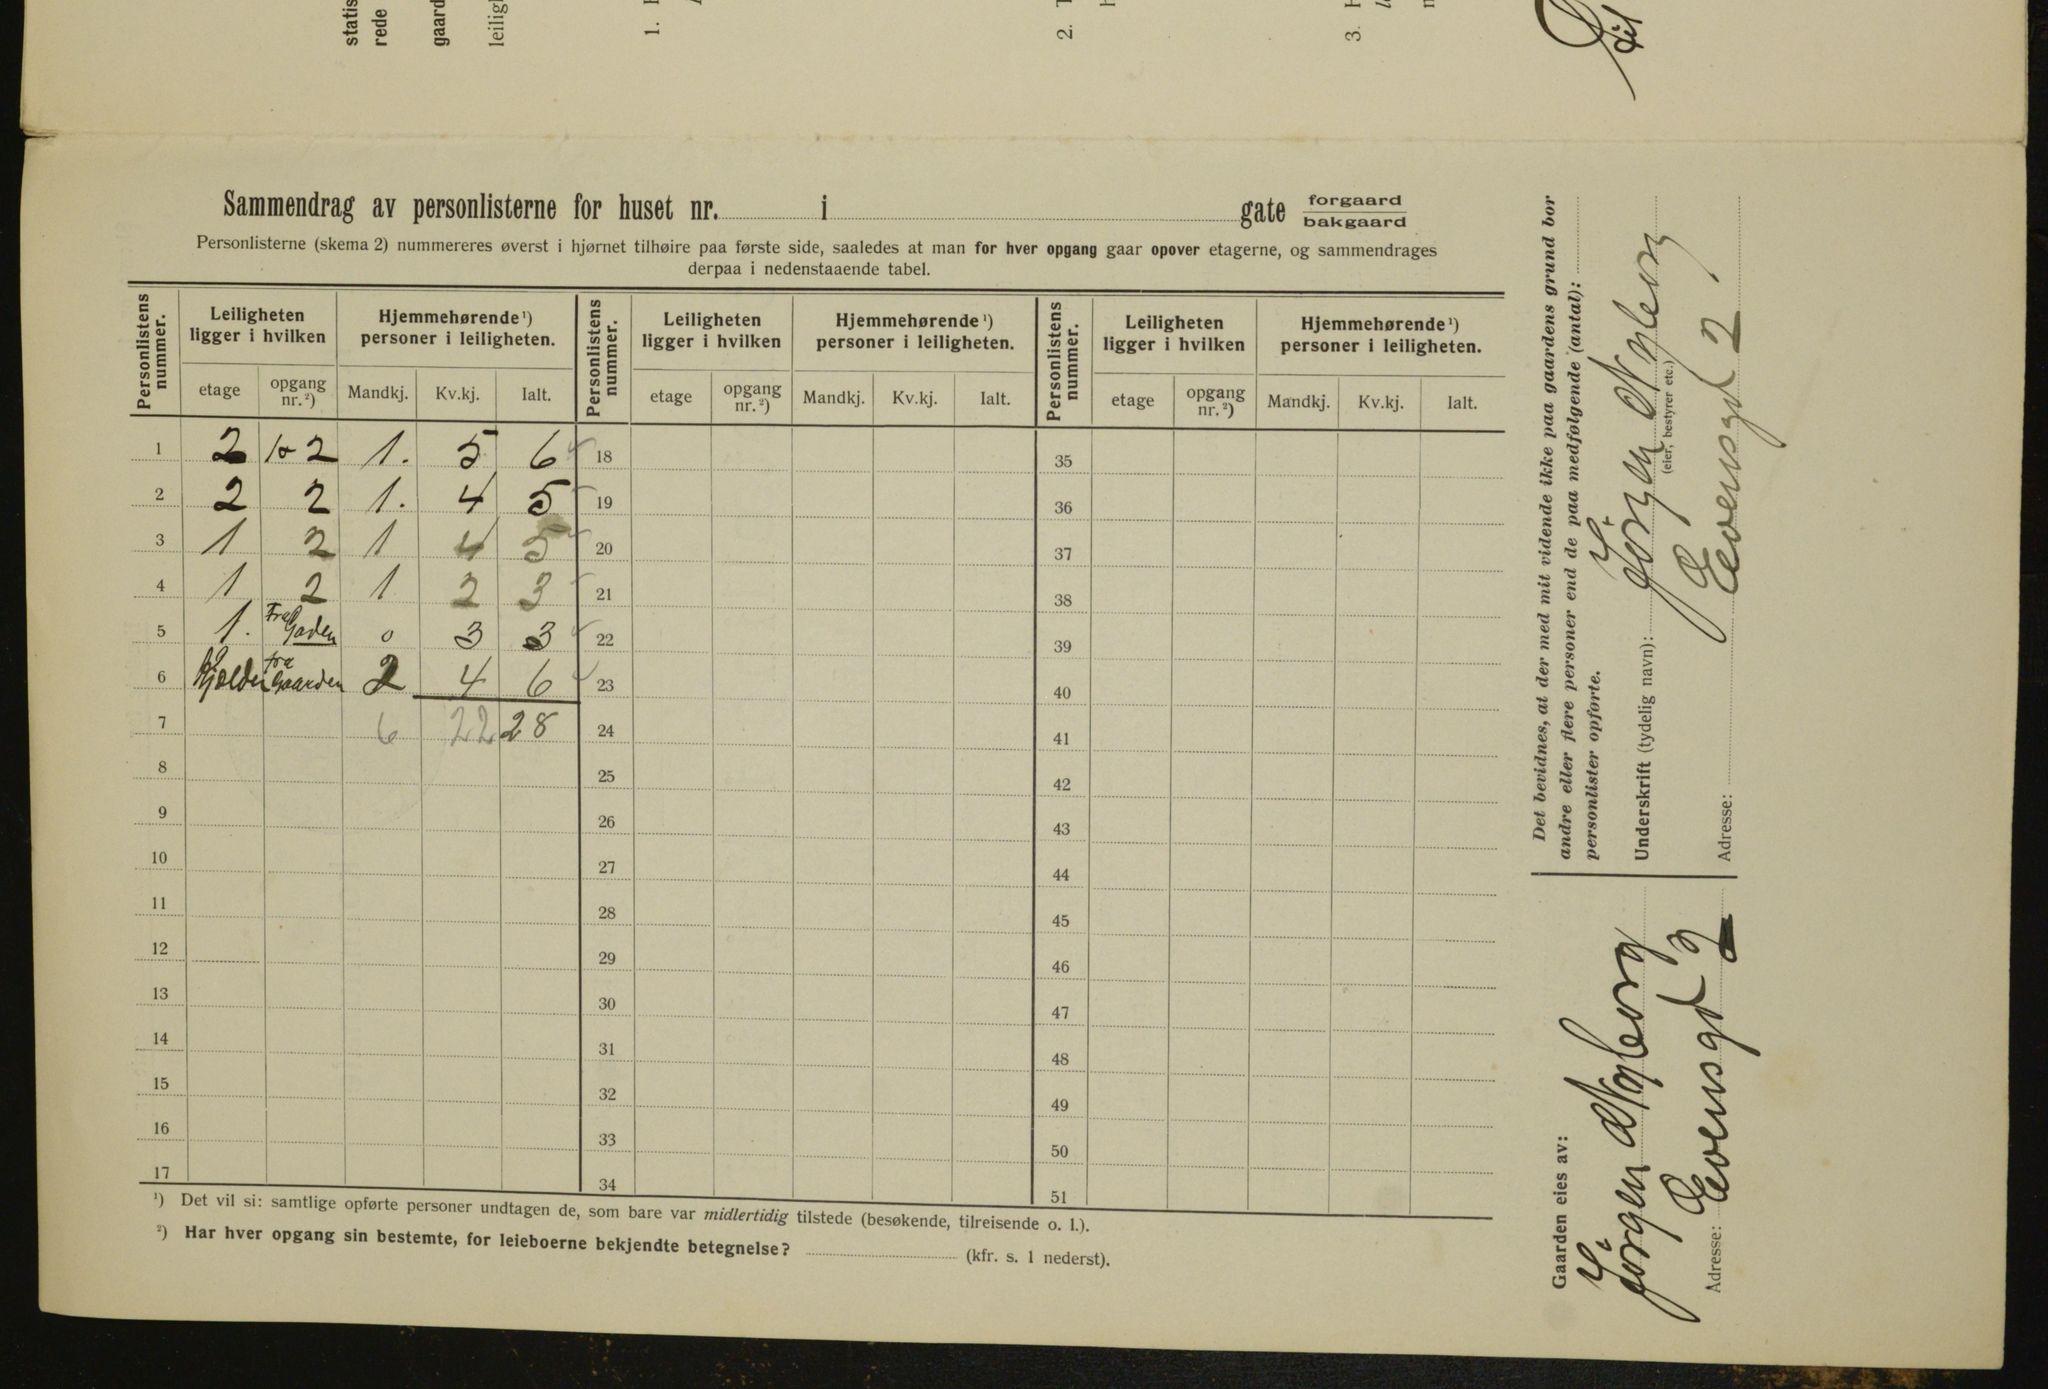 statis
rede
gaard
leilig
1.
2.
3.
til
Sammendrag av personlisterne for huset nr. i gate forgaard
bakgaard
Personlisterne (skema 2) nummereres øverst i hjørnet tilhøire paa første side, saaledes at man for hver opgang gaar opover etagerne, og sammendrages
derpaa i nedenstaaende tabel.
Personlistens nummer. Leiligheten ligger i hvilken Hjemmehørende ¹) personer i leiligheten. Personlistens nummer. Leiligheten ligger i hvilken Hjemmehørende ¹) personer i leiligheten. Personlistens nummer. Leiligheten ligger i hvilken Hjemmehørende ¹) personer i leiligheten.
etage opgang nr. ²) Mandkj. Kv.kj. Ialt. etage opgang nr. ²) Mandkj. Kv.kj. Ialt. etage opgang nr. ²) Mandkj. Kv.kj. Ialt.
1 2 1 & 2 1. 5 6 18 35
2 2 2 1. 4 5 19 36
3 1 2 1 4 5 20 37
4 1 2 1 2 3 21 38
5 1. Fra Gaden 0 3 3 22 39
6 Kjælder fra Gaarden 2 4 6 23 40
7 6 22 28 24 41
8 25 42
9 26 43
10 27 44
11 28 45
12 29 46
13 30 47
14 31 48
15 32 49
16 33 50
17 34 51
¹) Det vil si: samtlige opførte personer undtagen de, som bare var midlertidig tilstede (besøkende, tilreisende o. l.).
²) Har hver opgang sin bestemte, for leieboerne bekjendte betegnelse? (kfr. s. 1 nederst).
Det bevidnes, at der med mit vidende ikke paa gaardens grund bor
andre eller flere personer end de paa medfølgende (antal):
personlister opførte.
Underskrift (tydelig navn): Jörgen Nyborg
(eier, bestyrer etc.)
Adresse: Evensgd 2
Gaarden eies av:
Jörgen Nyborg
Adresse: Evensgd 2